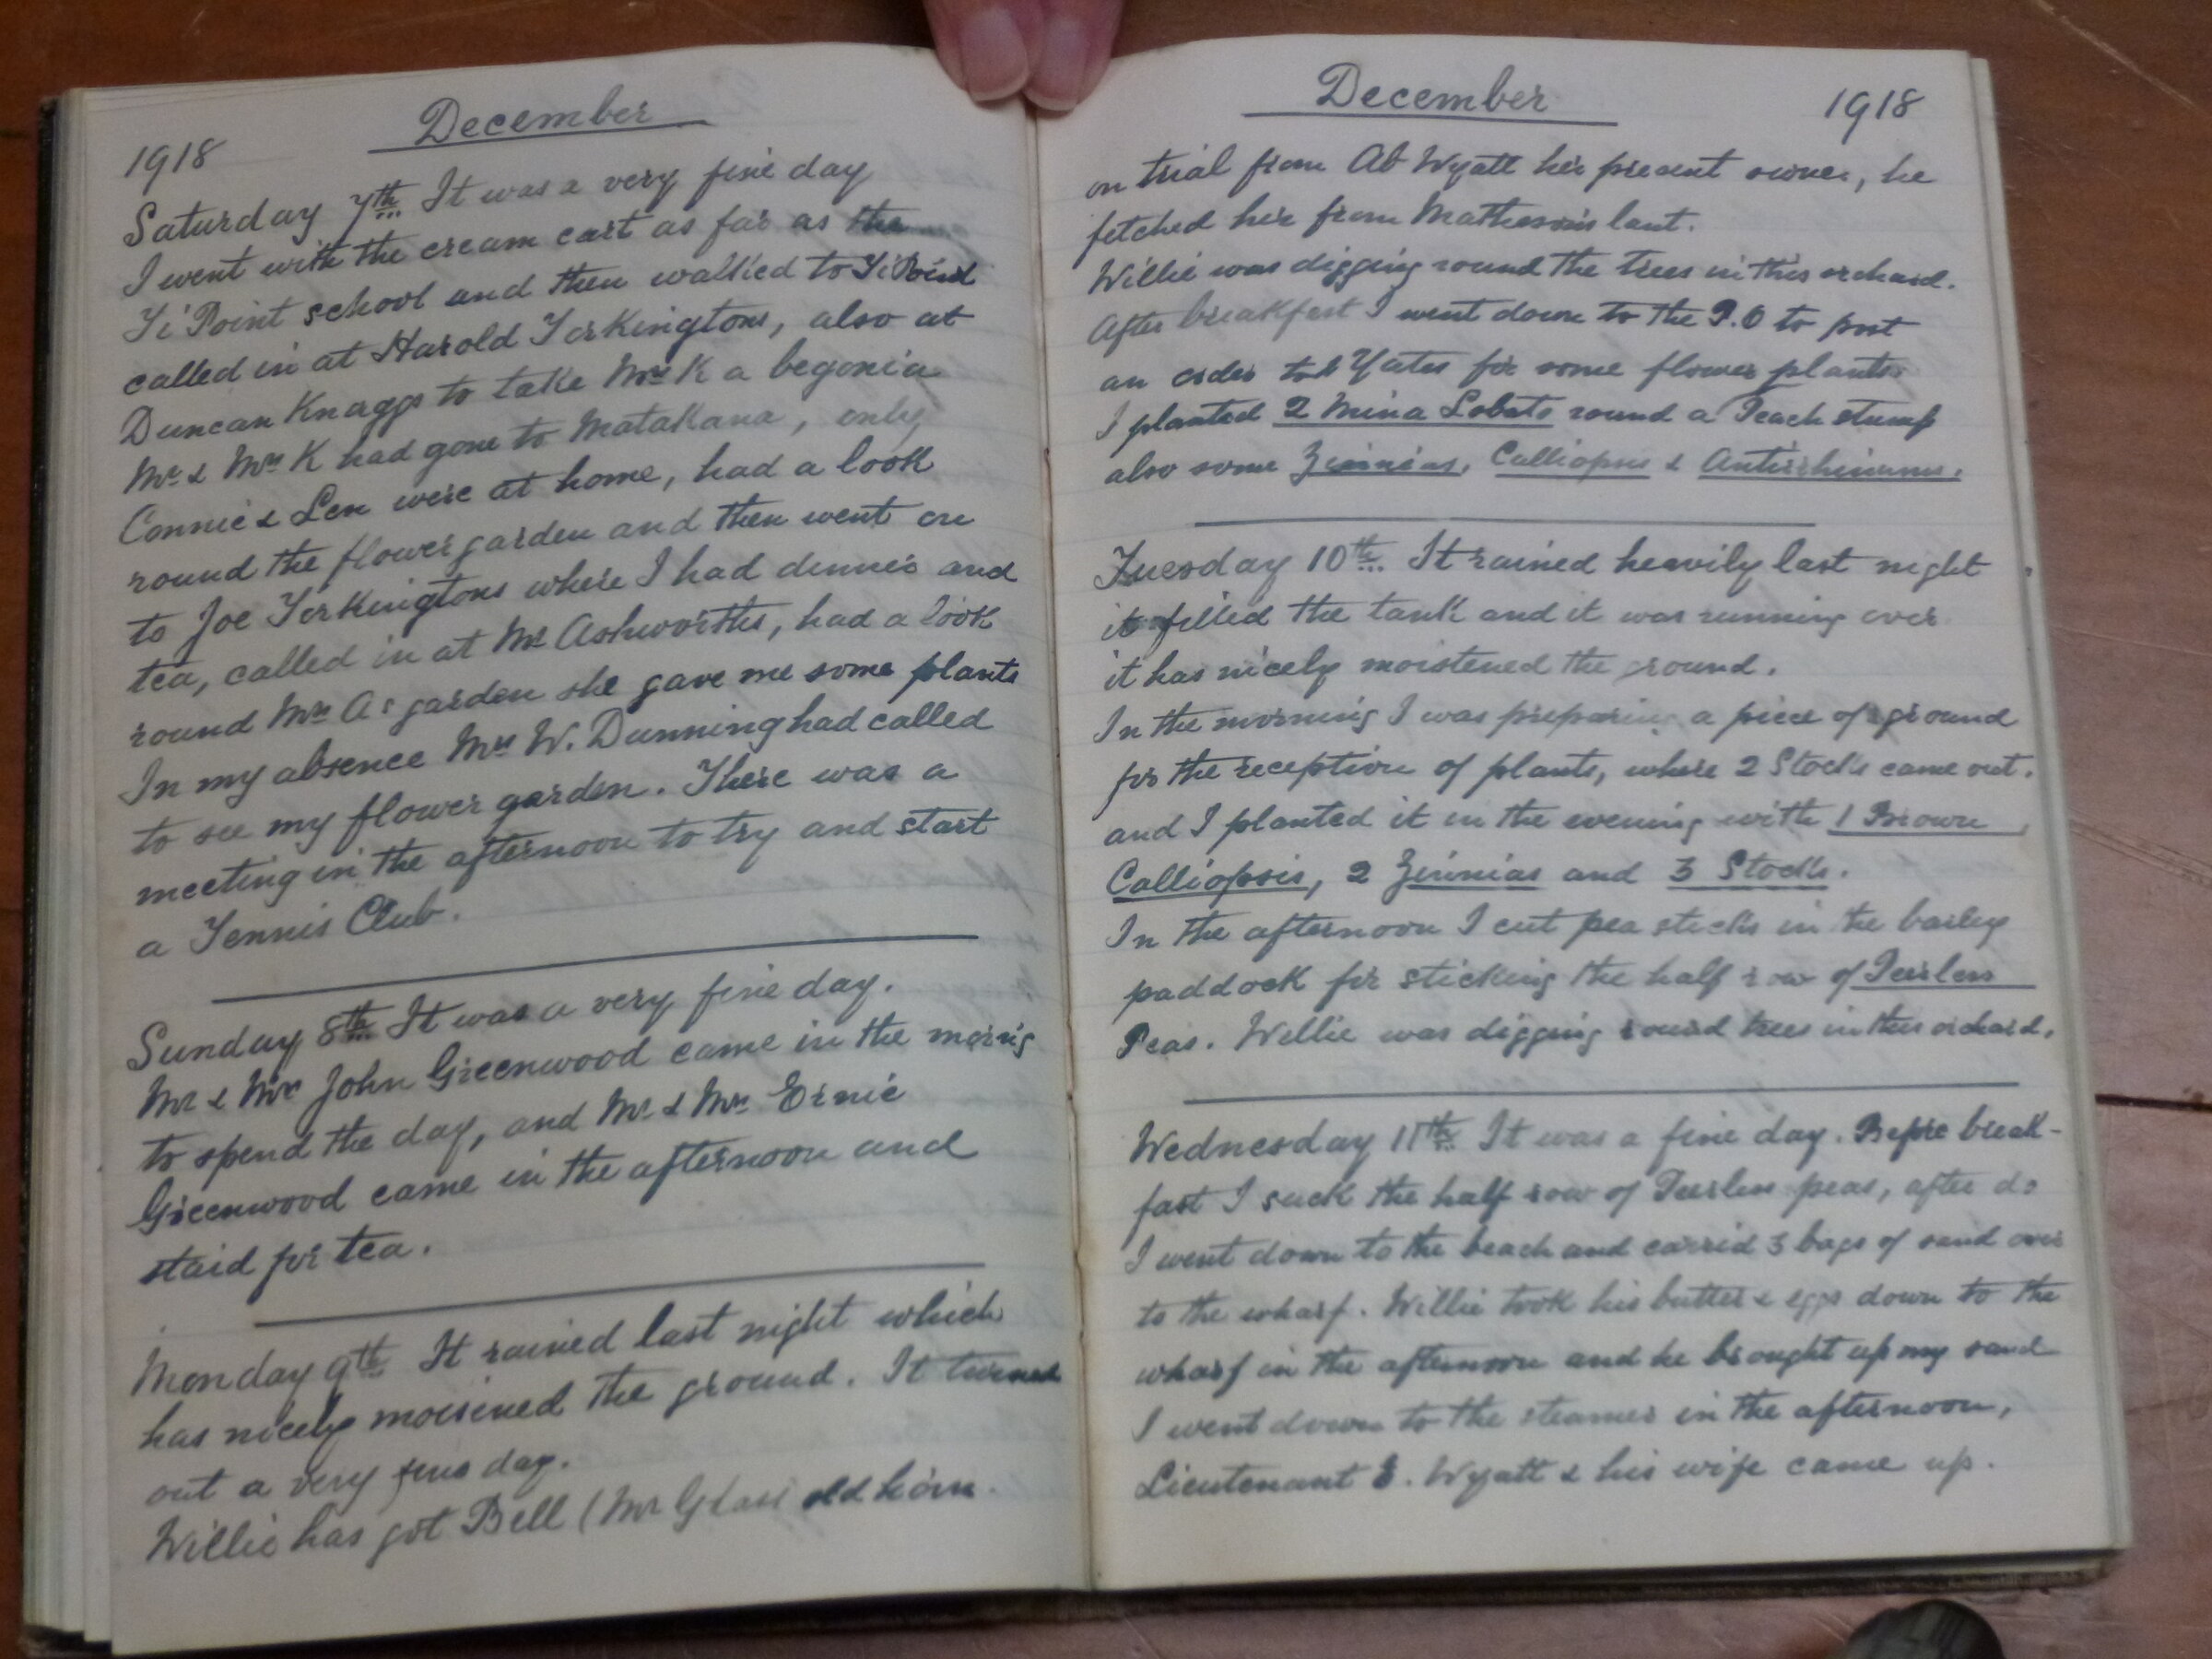 December
1918
Saturday 7th It was a very fine day
I went with the cream cart as far as the
Ti Point school and then walked to Ti Point
called in at Harold Torkingtons, also at
Duncan Knaggs to take Mrs K a begonia
Mr & Mrs K had gone to Matakana, only
Connie & Len were at home, had a look
round the flower garden and then went on
to Joe Torkingtons where I had dinner and
tea, called in at Mr Ashworths, had a look
round Mrs As garden she gave me some plants
In my absence Mrs W. Dunning had called
to see my flower garden. There was a
meeting in the afternoon to try and start
a Tennis Club.
Sunday 8th It was a very fine day.
Mr & Mrs John Greenwood came in the morng
to spend the day, and Mr & Mrs Ernie
Greenwood came in the afternoon and
staid for tea.
Monday 9th It rained last night which
has nicely moisined the ground. It turned
out a very fine day.
Willie has got Bell (Mr Glass old
December 1918
on trial from Ab Wyatt her present owner, he
fetched her from Mathesons last.
Willie was digging round the trees in this orchard.
After breakfast I went down to the P.O to post
an order to Yates for some flower plants
I planted 2 Mina Lobata round a Peach stump
also some Zinnias, Calliopsis & Antirrhinums.
Tuesday 10th It rained heavily last night
it filled the tank and it was running over
it has nicely moistened the ground.
In the morning I was preparing a piece of ground
for the reception of plants, where 2 Stocks came out.
and I planted it in the evening with 1 Brown
Calliopsis, 2 Zinnias and 3 Stocks.
In the afternoon I cut pea sticks in the barley
paddock for sticking the half row of Peerless
Peas. Willie was digging round trees in this orchard.
Wednesday 11th It was a fine day. Before break-
fast I suck the half row of Peerless peas, after do
I went down to the beach and carrid 3 bags of sand over
to the wharf. Willie took his butter & eggs down to the
wharf in the afternoon and he brought up my sand
I went down to the steamer in the afternoon,
Lieutenant E. Wyatt & his wife came up.